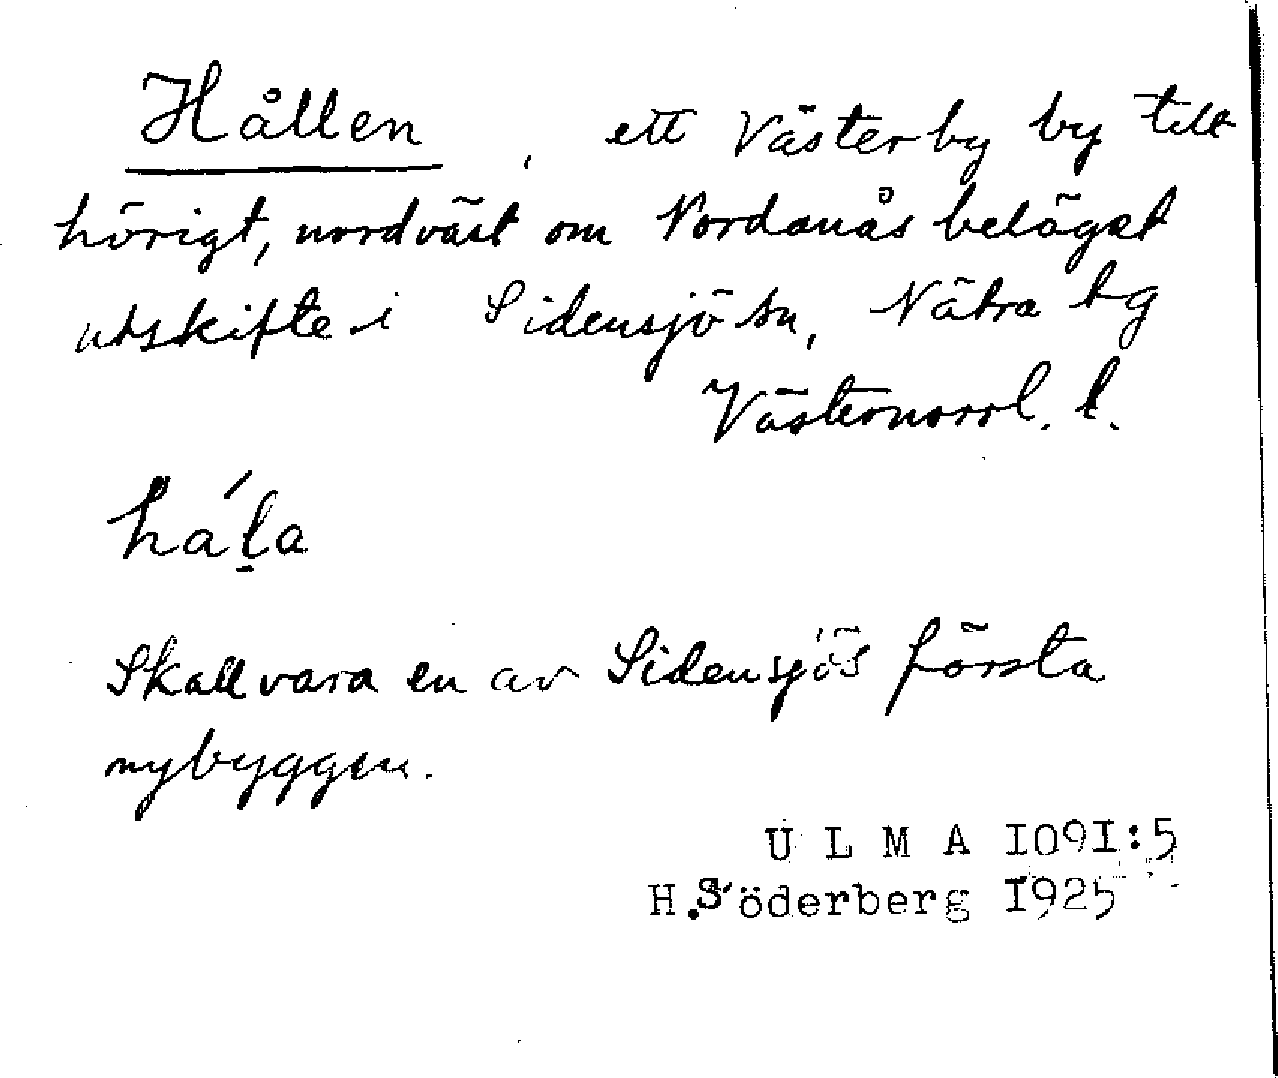 Hållen, ett Västerby by till-
hörigt, nordväst om Nordanås beläget
utskifte i Sidensjö sn, Nätra tg
Västernorrl. l.
há̱la
Skall vara en av Sidensjös första
nybyggen.
U L M A 1091:5
H.Söderberg 1925